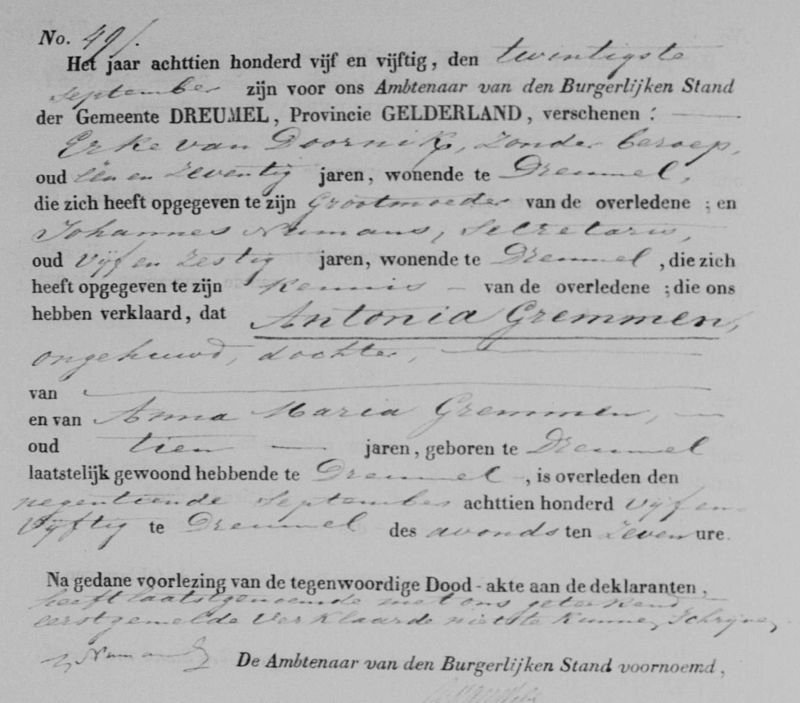 No. 49/.
Het jaar achttien honderd vijf en vijftig, den twintigste
September zijn voor ons Ambtenaar van den Burgerlijken Stand
der Gemeente DREUMEL, Provincie GELDERLAND, verschenen :
Erke van Doornik, zonder beroep,
oud één en zeventig jaren, wonende te Dreumel,
die zich heeft opgegeven te zijn Grootmoeder van de overledene ; en
Johannes Numans, Secretaris,
oud vijf en zestig jaren, wonende te Dreumel, die zich
heeft opgegeven te zijn kennis van de overledene ; die ons
hebben verklaard, dat Antonia Gremmen,
ongehuwd, dochter,
van
en van Anna Maria Gremmen,
oud tien jaren, geboren te Dreumel
laatstelijk gewoond hebbende te Dreumel, is overleden den
negentiende September achttien honderd vijf en
vijftig te Dreumel des avonds ten zeven ure.
Na gedane voorlezing van de tegenwoordige Dood-akte aan de deklaranten,
heeft laatstgenoemde met ons geteekend
eerstgemelde verklaarde niet te kunnen schrijven,
De Ambtenaar van den Burgerlijken Stand voornoemd,